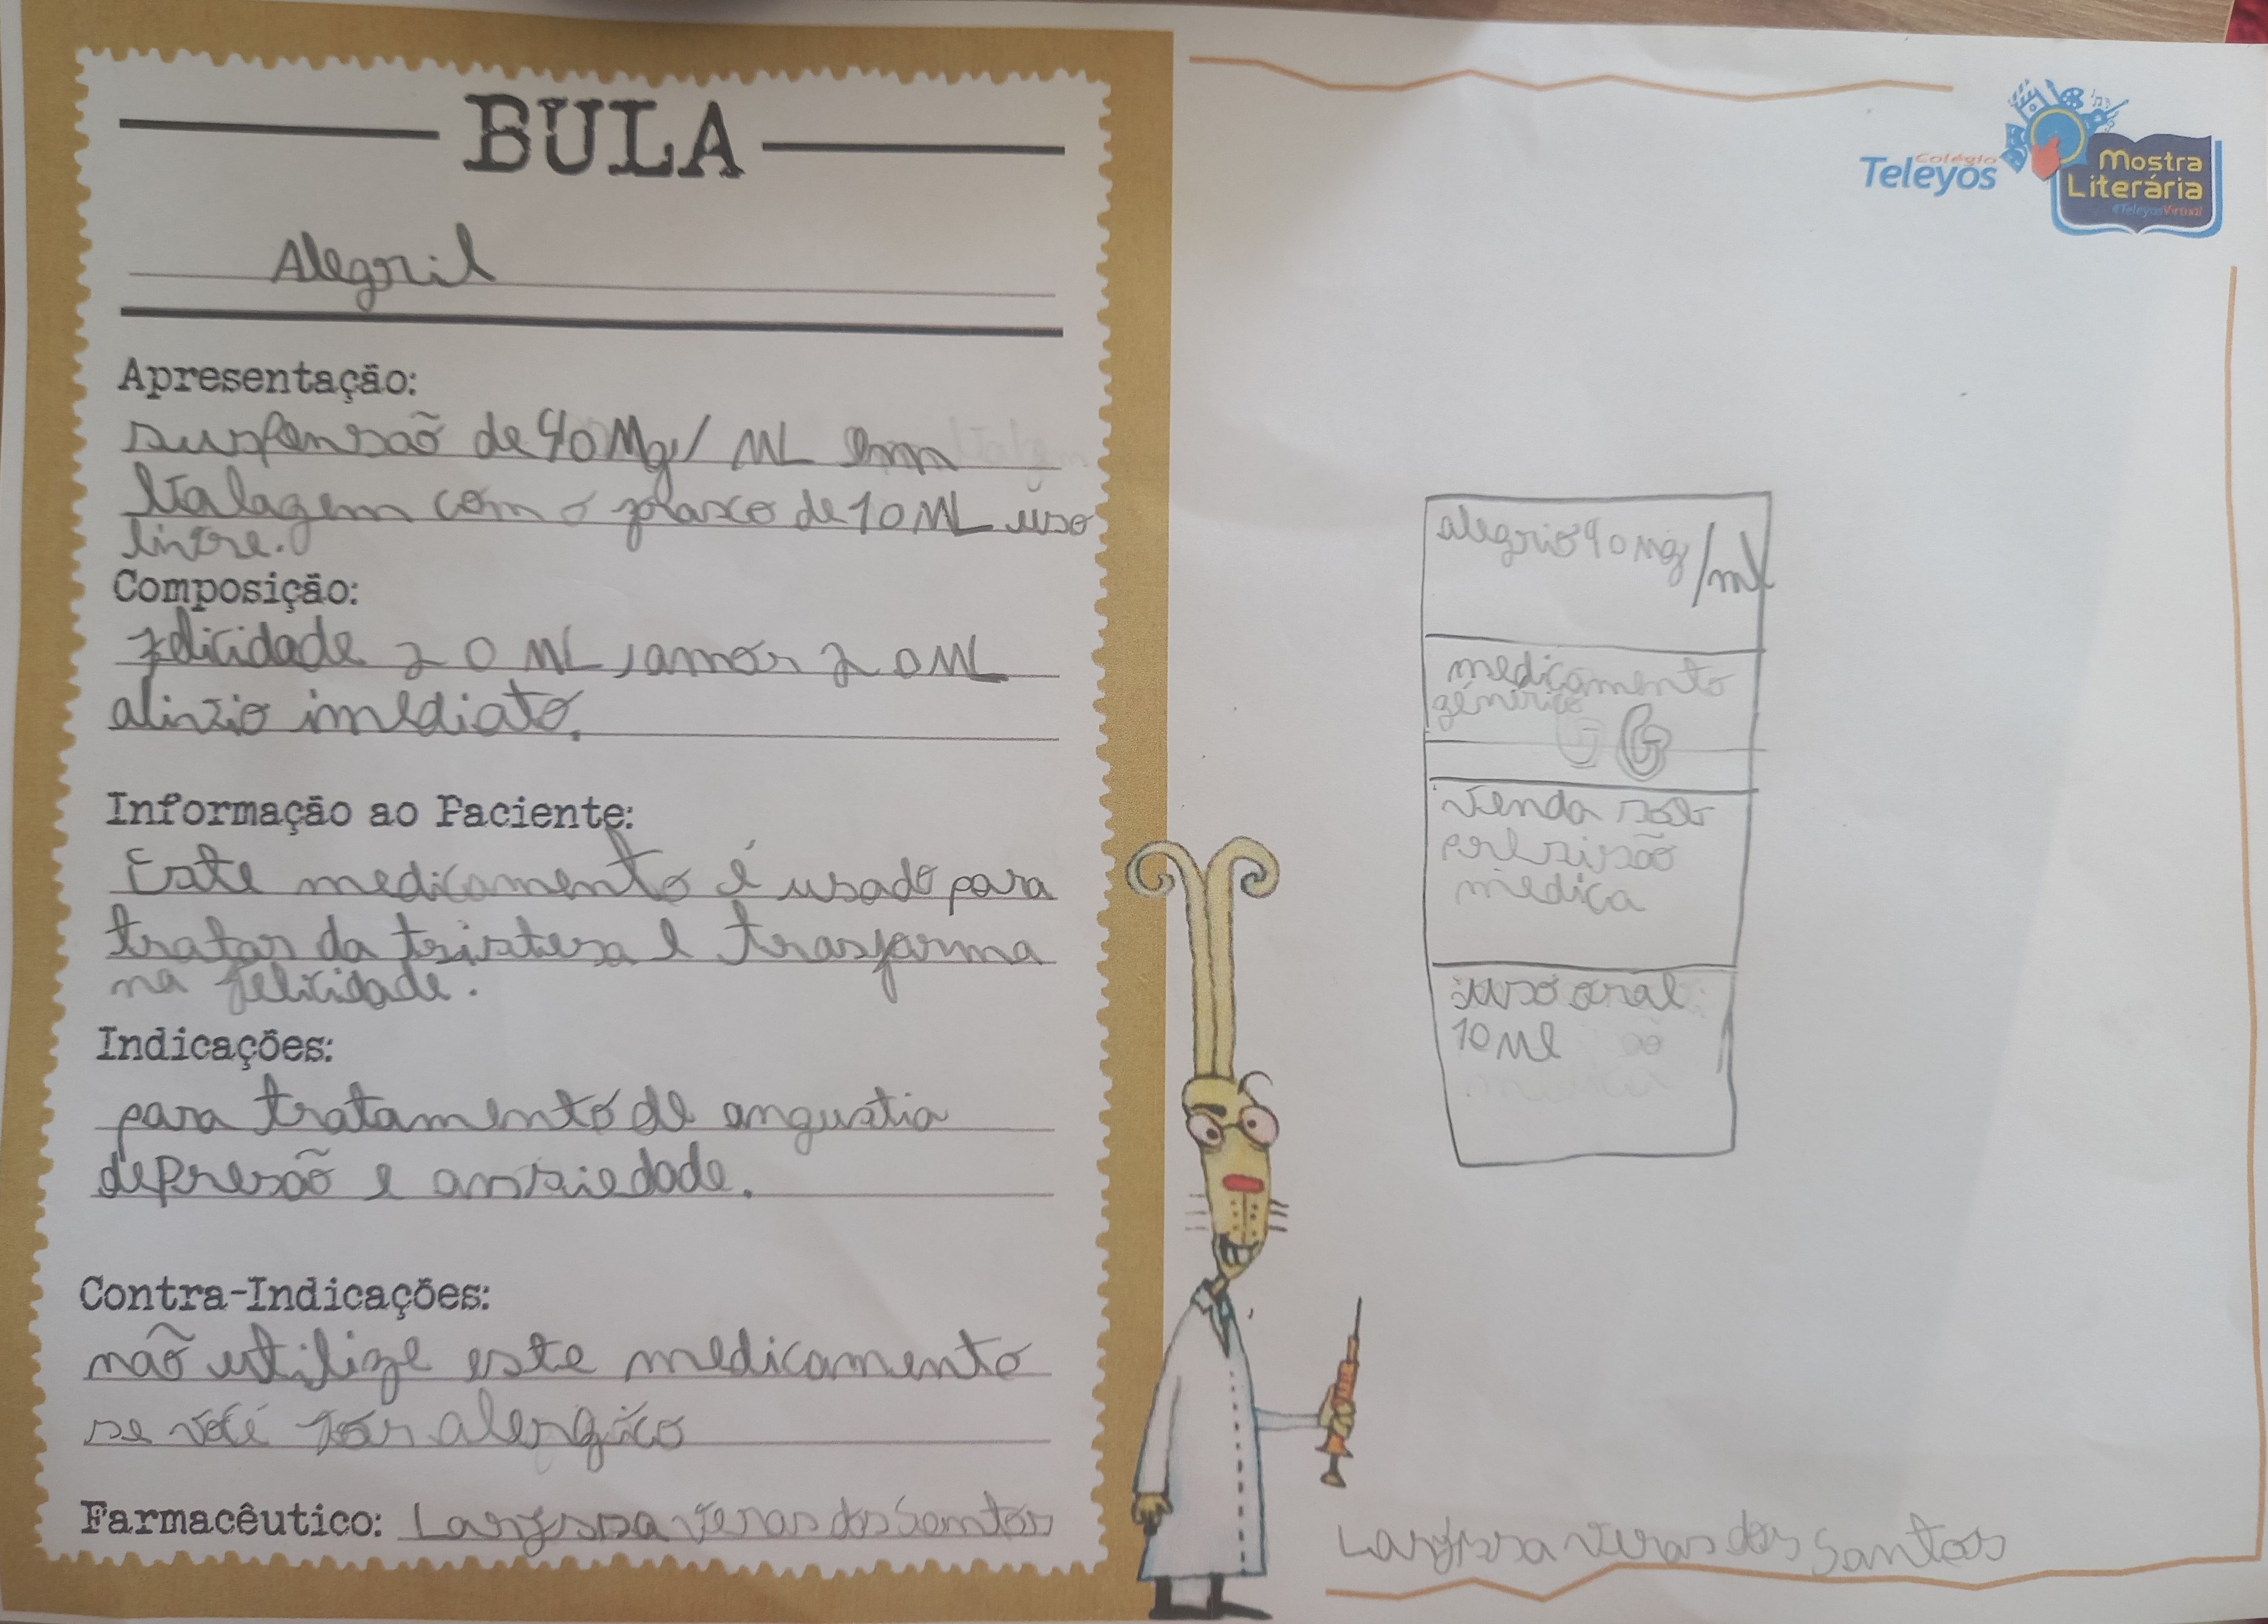 BULA
Alegril
Apresentação:
suspensão de 90 Mg/ML em
com o frasco de 10 ML uso
livre.
Composição:
felicidade 20 ML, amor 20ML
alivio imediato.
Informação ao Paciente:
Este medicamento é usado para
tratar da tristesa e trasforma
na felicidade.
Indicações:
para tratamento de angustia
depresão e ansiedade.
Contra-Indicações:
não utilize este medicamento
se você for alergico
Farmacêutico: Laryssa Veras dos Santos
Colégio
Teleyos
Mostra
Literária
#TeleyosVirtual
alegrio 90 Mg/ml
medicamento
génerico
G
Venda sob
médica
uso oral
10 Ml
Laryssa Veras dos Santos